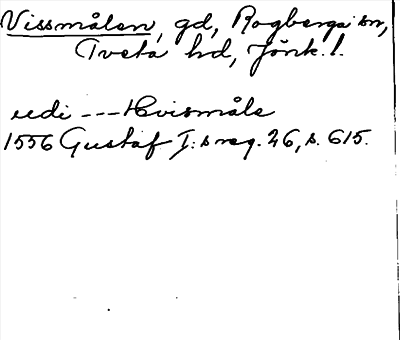 Vissmålen, gd, Rogberga sn,
Tveta hd, Jönk. l.
udi --- Hvismåle
1556 Gustaf I:s reg. 26, s. 615.